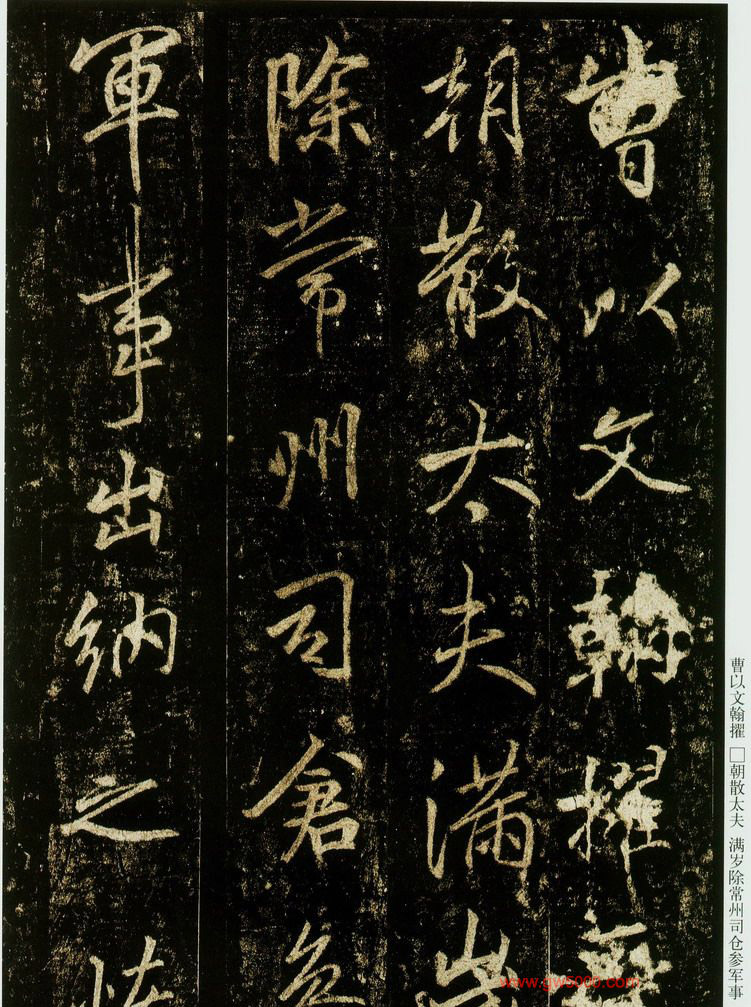 曹以文翰擢
朝散太夫滿歲
除常州司倉參
軍事出納之
曹以文翰擢 □朝散太夫 满岁除常州司仓参军事